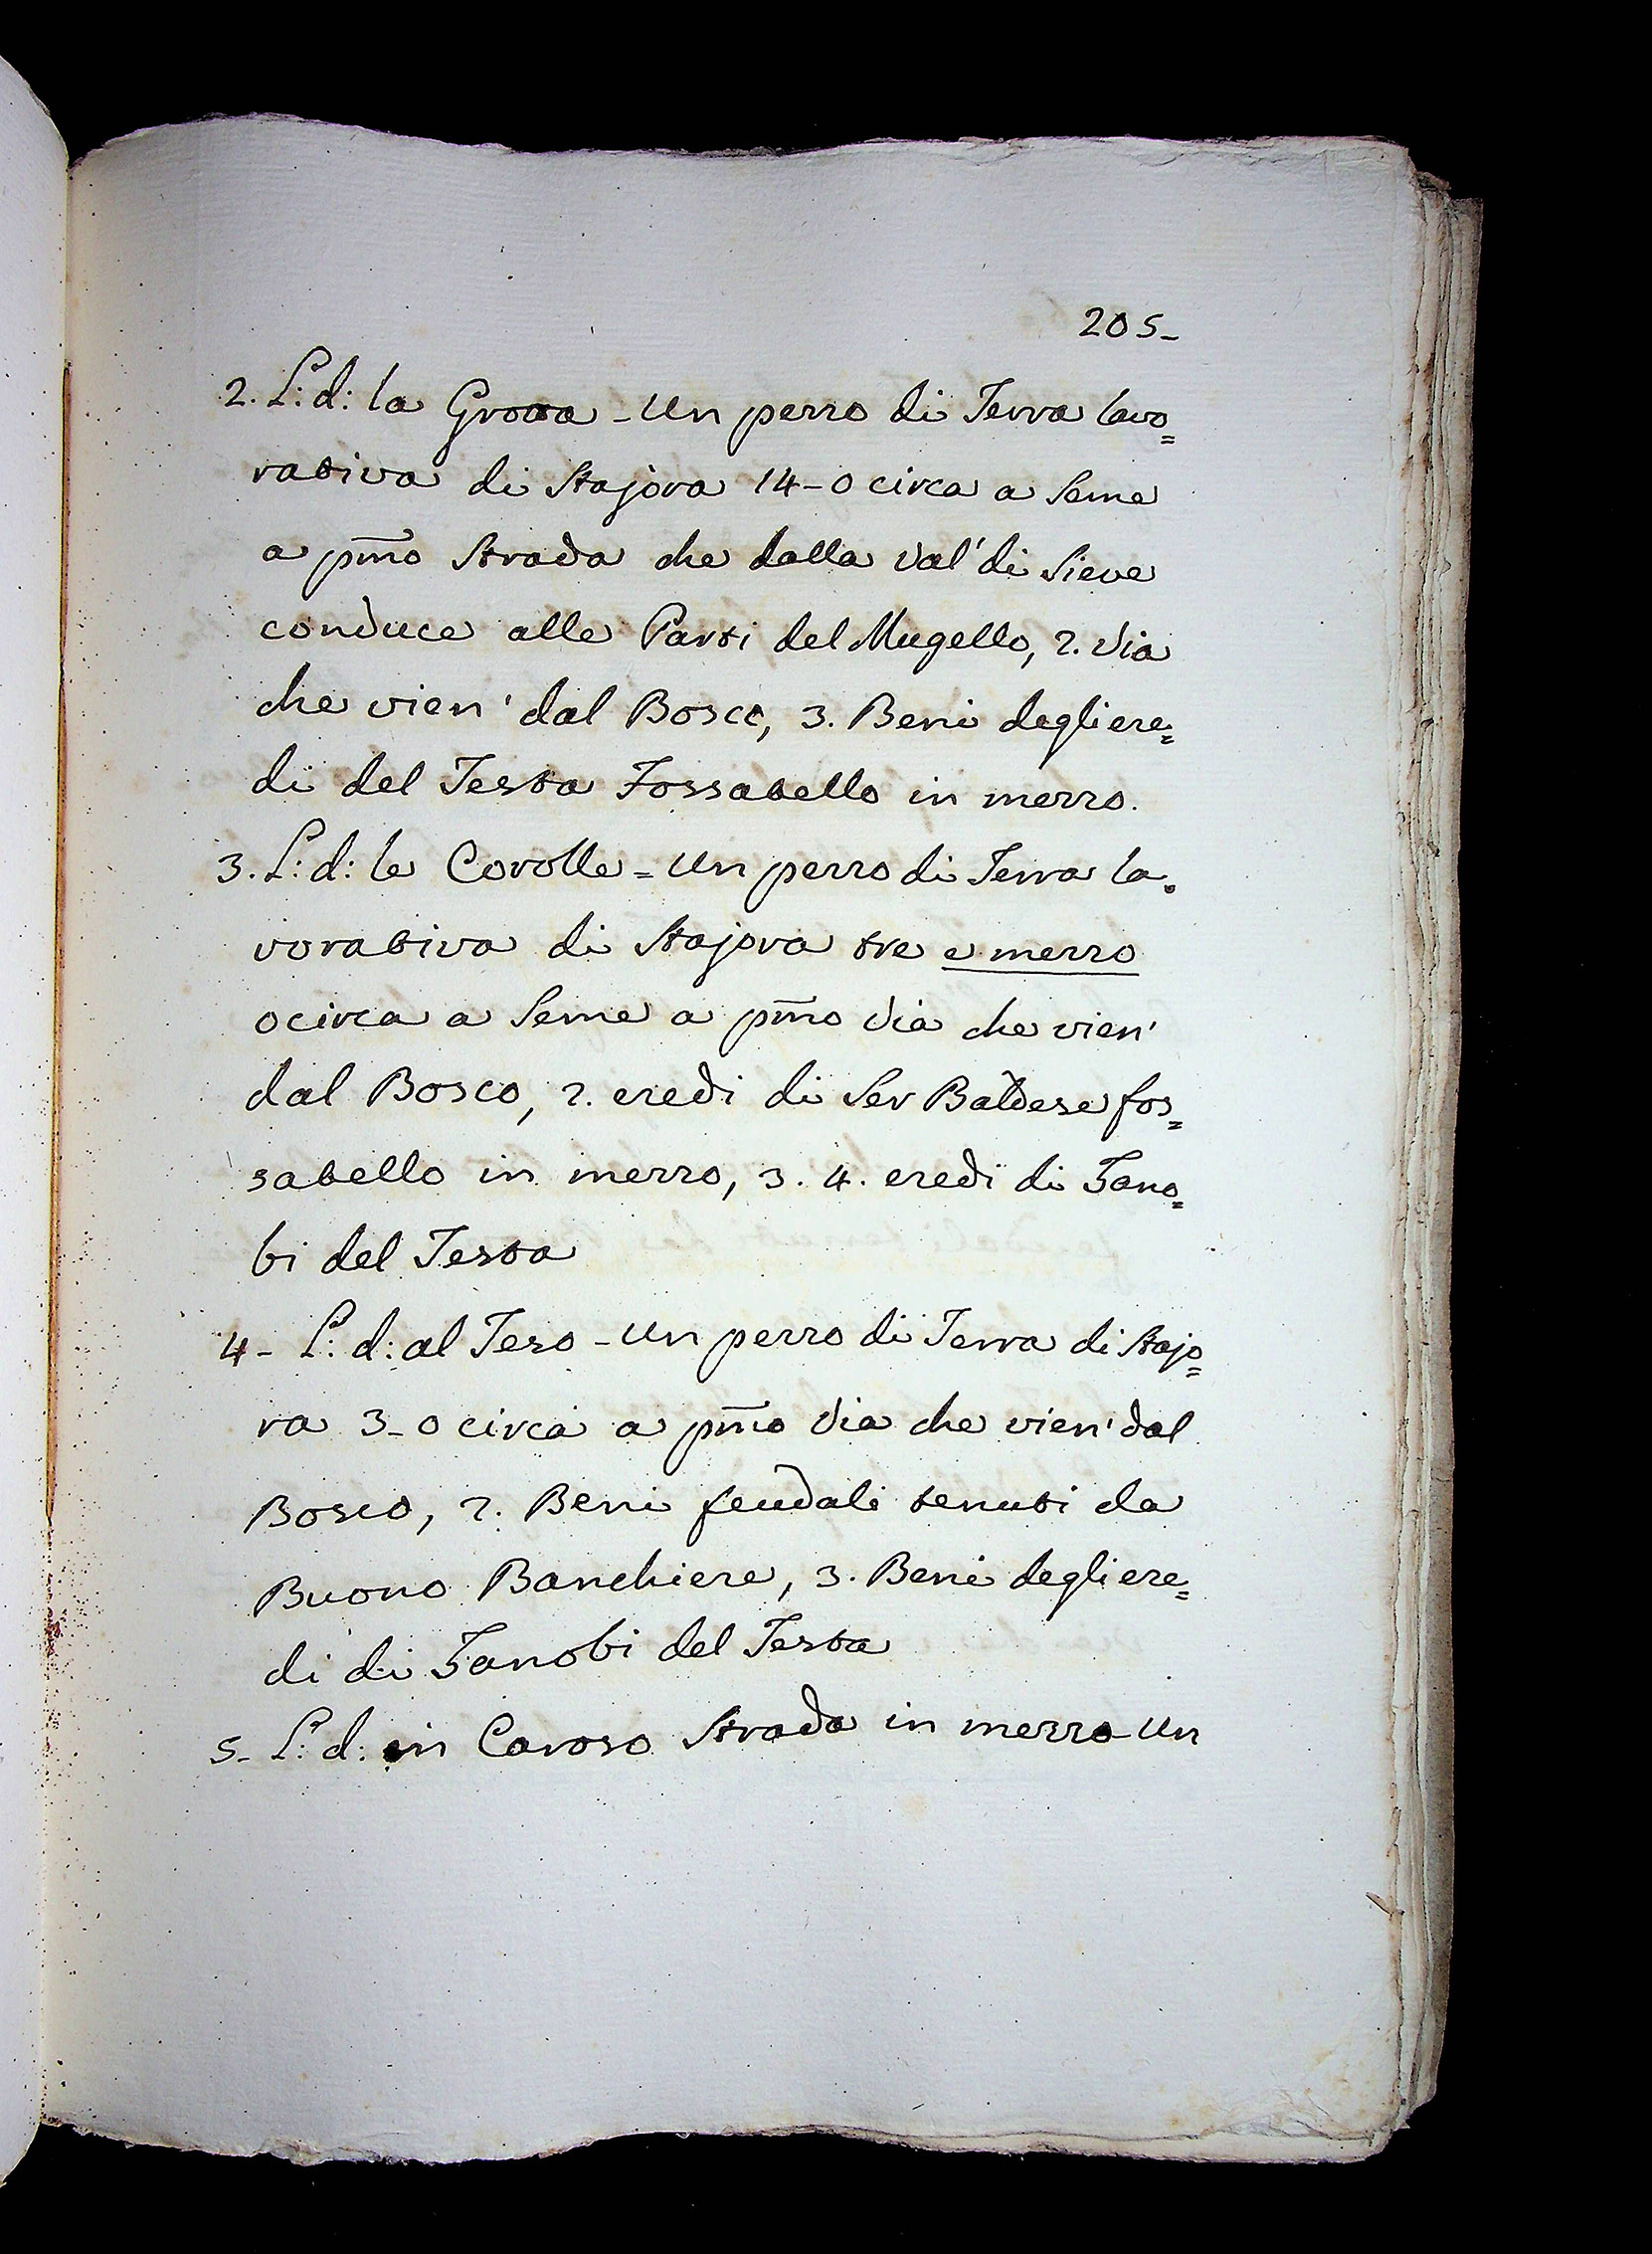 205-
2. L: d: la Grotta - Un pezzo di Terra lavo=
rativa di Stajora 14-0 circa a Seme
a pmo Strada che dalla Val' di Sieve
conduce alle Parti del Mugello, 2. Via
che vien' dal Bosco, 3. Beni degli ere=
di del Testa Fossatello in mezzo.
3. L: d: le Corolle = Un pezzo di Terra la=
vorativa di Stajora tre e mezzo
o circa a Seme a pmo Via che vien'
dal Bosco, 2. eredi di Ser Baldese fos=
satello in mezzo, 3. 4. eredi di Zano=
bi del Testa
4- L: d: al Tezo - Un pezzo di Terra di Stajo=
ra 3-0 circa a pmo Via che vien' dal
Bosco, 2. Beni feudali tenuti da
Buono Banchiere, 3. Beni degli ere=
di di Zanobi del Testa
5- L: d: in Caroso Strada in mezzo - Un